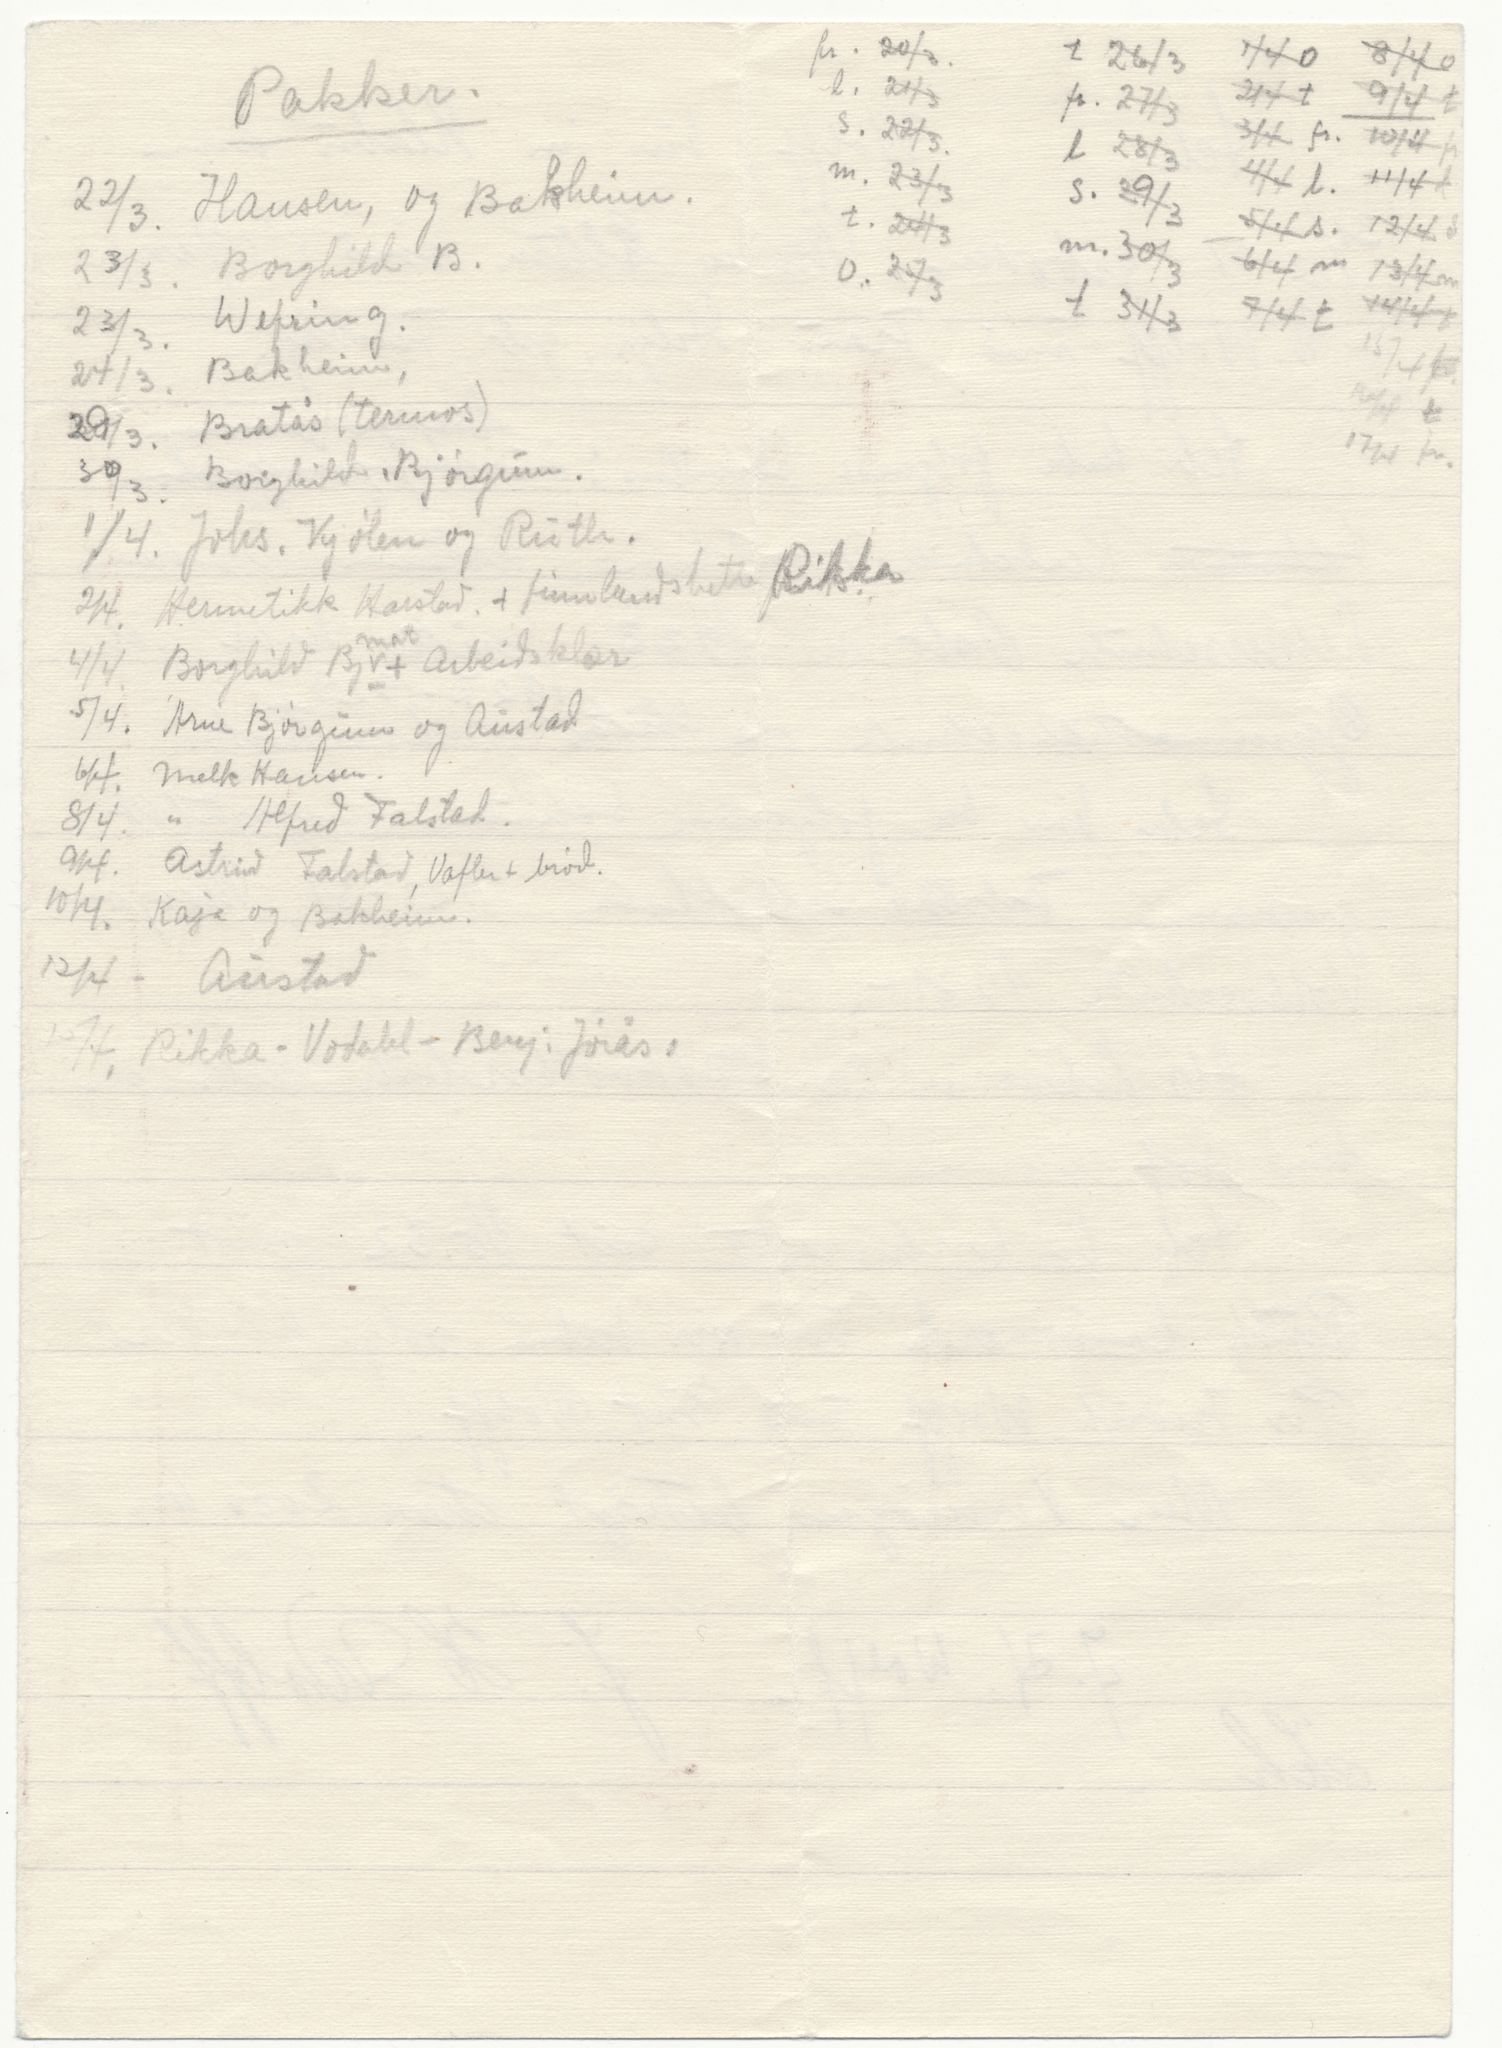 Pakker.
22/3. Hansen, og Bakheim.
23/3. Borghild B.
23/3. Wefring.
24/3. Bakheim,
29/3. Bratås (termos)
30/3. Borghild. Bjørgum.
1/4. Johs. Kjølen og Ruth.
2/4. Hermetikk Harstad. + finnlandshette Rikka
mat
4/4. Borghild Bj + Arbeidsklær
5/4. Arne Bjørgum og Austad
6/4. Melk Hansen.
8/4. " Alfred Falstad.
9/4. Astrid Falstad, Vafler + brød.
10/4. Kaja og Bakheim.
12/4 - Austad
15/4. Rikka - Vodahl - Benj: Jørås.
fr. 20/3.
l. 21/3
s. 22/3.
m. 23/3
t. 24/3
o. 25/3
t 26/3
fr. 27/3
l 28/3
s. 29/3
m. 30/3
t 31/3
1/4 o
2/4 t
3/4 fr.
4/4 l.
5/4 s.
6/4 m
7/4 t
8/4 o
9/4 t
10/4 fr
11/4 l
12/4 s
13/4 m
14/4 t
15/4
16/4 t
17/4 fr.